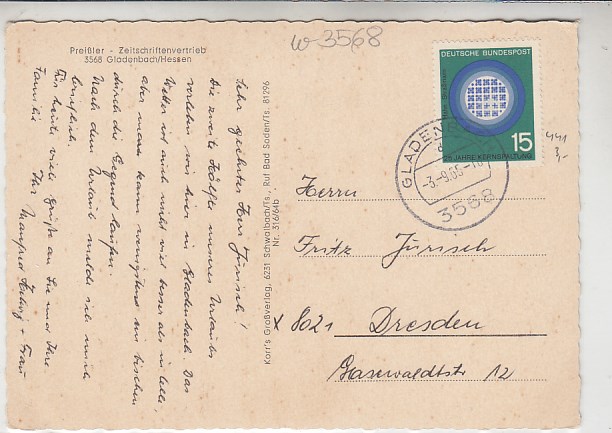 w 3568
Preißler - Zeitschriftenvertrieb
3568 Gladenbach/Hessen
Sehr geehrter Herr Jürisch!
Die zweite Hälfte unseres Urlaubs
verleben wir hier in Gladenbach. Das
Wetter ist auch nicht viel besser als in
aber man kann wenigstens ein bischen
durch die Gegend laufen.
Nach dem Urlaub melde ich mich
Für heute viele Grüße an Sie und Ihre
Familie
Ihr Manfred + Frau
Korr's Großverlag, 6231 Schwalbach/Ts., Ruf Bad Soden/Ts. 81296
Nr. 316/64b
DEUTSCHE BUNDESPOST
15
25 JAHRE KERNSPALTUNG
GLADENB
-3.-9.65-18
3568
441
3,-
Herrn
Fritz Jürisch
x 8021 Dresden
12